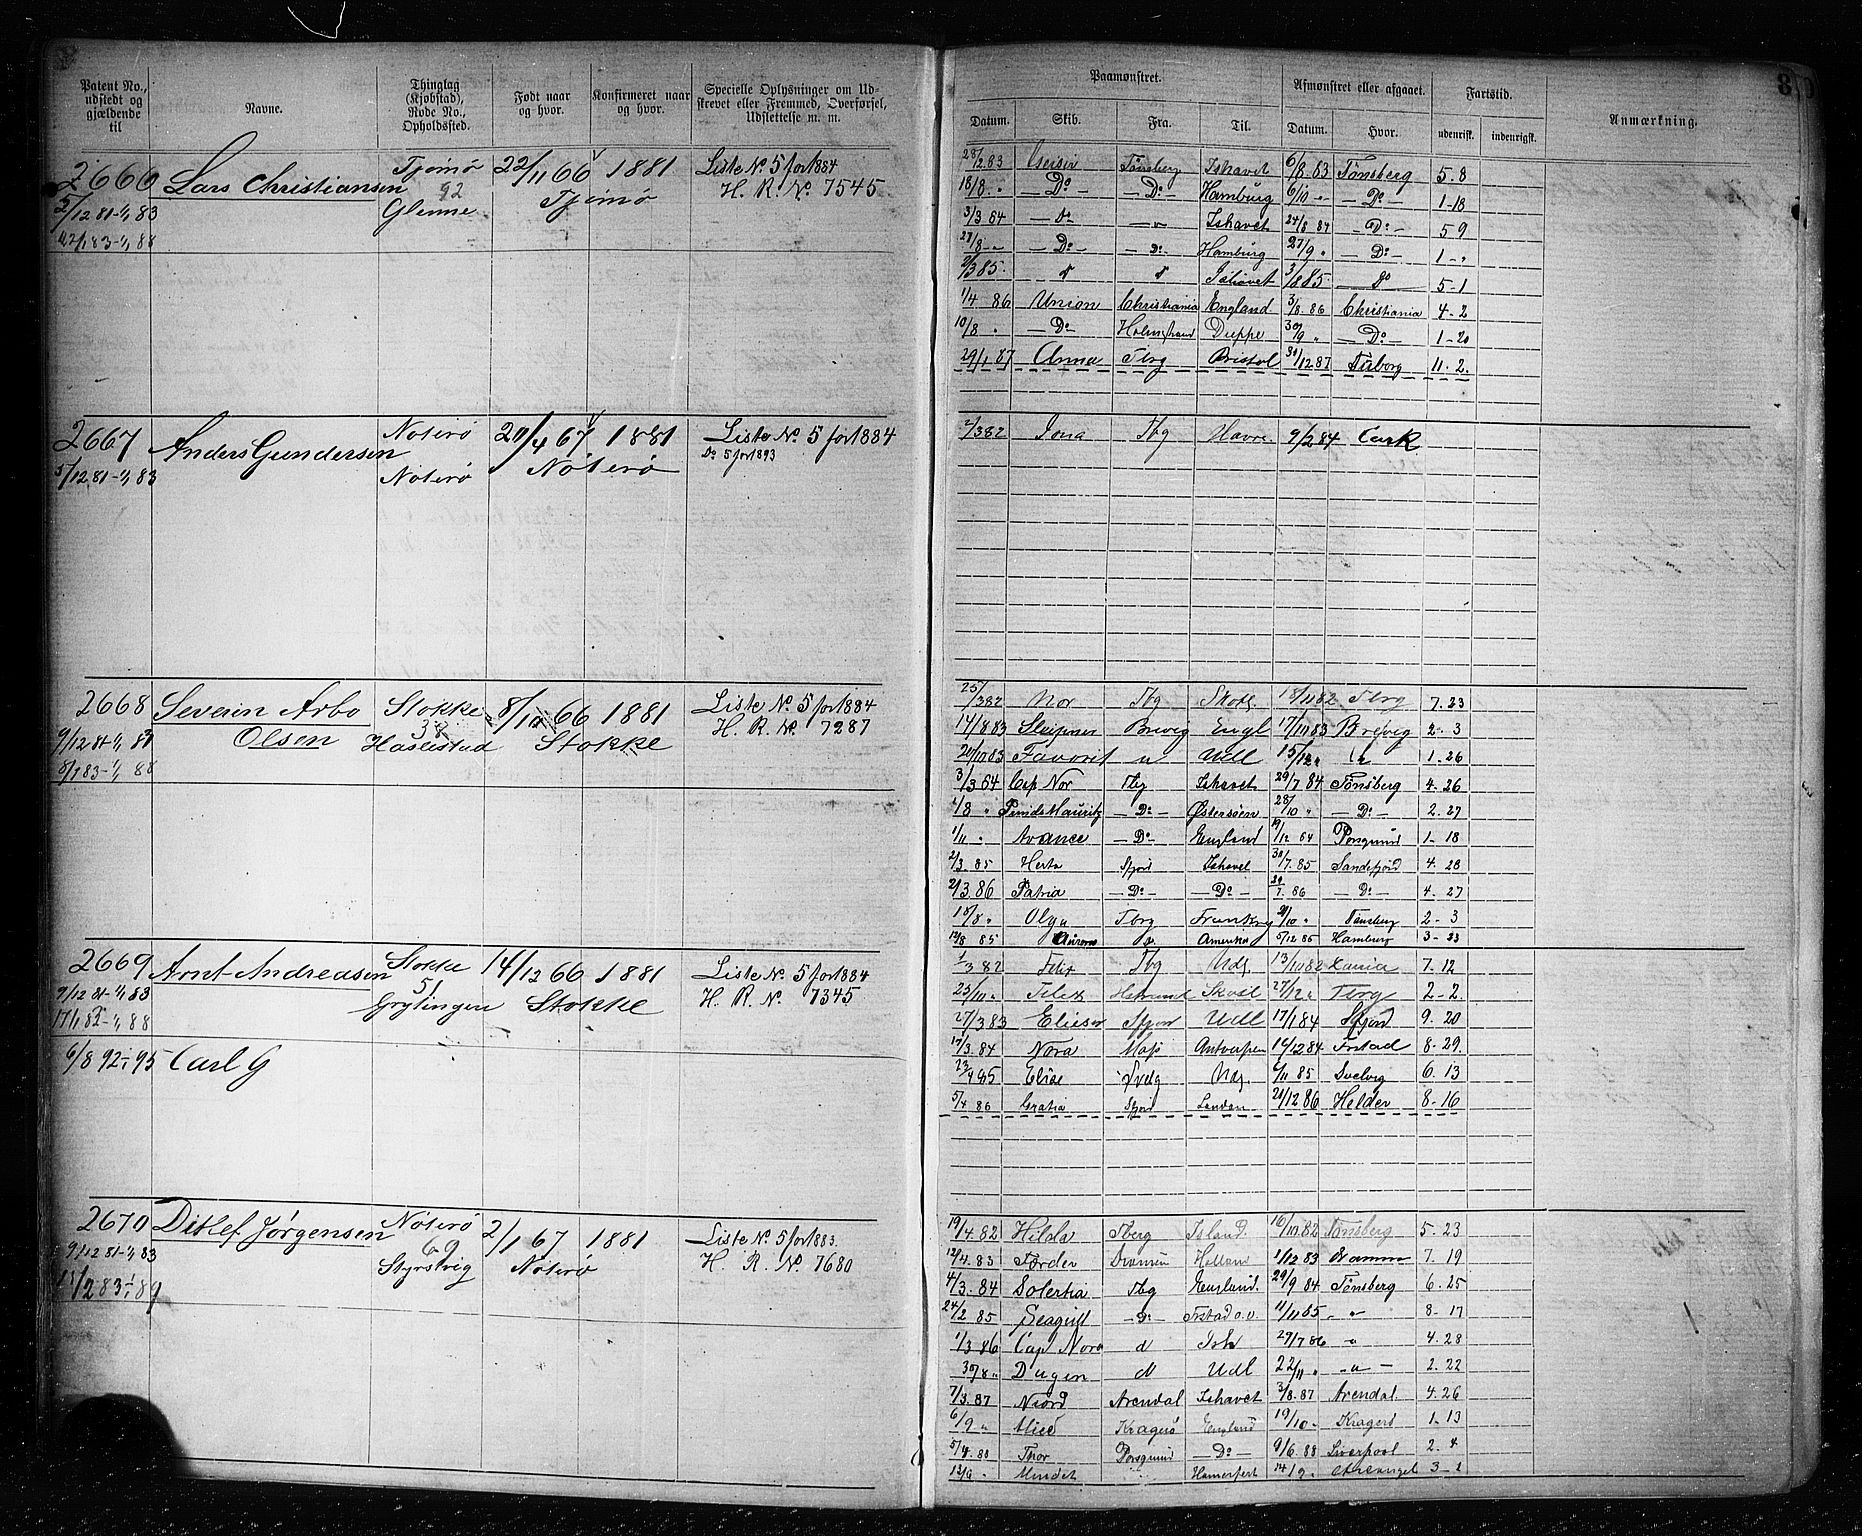 Patent No., udstedt og gjældende til
Navne.
Thinglag (Kjøbstad), Rode No., Opholdssted.
Født naar og hvor.
Konfirmeret naar og hvor.
Specielle Oplysninger om Udstrevet eller Fremmed, Overførsel, Udslettelse m. m.
2666 Lars Christiansen Tjømø 22/11 66 1881 Liste No. 5 for 1884
92 H. R. No. 7545.
5/12 81-1/1 83 Glenne Tjømø
83-1/1 88
2667 Anders Gundersen Nøterø 20/4 67 1881 Liste No. 5 for 1884
Do 5 for 1893
5/12 81-1/1 83 Nøterø Nøterø
2668 Severin Arbo Stokke 8/10 66 1881 Liste No. 5 for 1884
38 H. R. No. 7287
Olsen Haslestad Stokke
9/12 81-1/1 83
8/1 83-1/1 88
2669 Arnt Andreasen Stokke 14/12 66 1881 Liste No. 5 for 1884
51 H. R. No. 7345
9/12 81-1/1 83 Grytingen Stokke
88
6/8 92-95 Carl G
2670 Ditlef Jørgensen Nøterø 2/1 67 1881 Liste No. 5 for 1883.
69 H. R. No. 7680
9/12 81-1/1 83 Styrsvig Nøterø
83-89
8
Paamønstret.
Afmønstret eller afgaaet.
Fartstid.
Anmærkning.
Datum. Skib. Fra. Til. Datum. Hvor. udenrigsk. indenrigsk.
28/2 83 Geiser Tønsberg Ishavet 6/8 83 Tønsberg 5.8
18/8 " - Do - - Do - Hamburg 6/10 - - Do - 1-18
3/3 84 - Do - - " - Ishavet 24/8 84 - Do - 5 9
27/8 - - Do - - Do - Hamburg 27/9 " - Do - 1 - "
2/3 85. Ishavet 3/8 85. Do 5-1
1/4 86 Union Christiania England 3/8 86 Christiania 4-2
10/8 " - Do - Holmestrand Dieppe 30/9 " - Do - 1-20
29/1 87 Anna Tbrg Bristol 30/12 87 11-2.
2/3 82 Iona Tbg Havre 9/2 84 Cork
25/3 82 Nor Tbg Skotl. 18/11 82 Tbrg 7.23
14/8 83 Sleipner Brevig Engl 17/10 83 Brevig 2-3
20/10 83 Favorit " Udl 15/12 " " 1-26
3/3 84 Cap Nor Tbg Ishavet 29/7 84 Tønsberg 4-26
1/8 " Prinds Mauritz - Do - Østersøen 28/10 " - Do - 2-27
1/11 " Avance - Do - England 19/12 84 Porsgrund 1-18
2/3 85 Herta Sfjord Ishavet 30/7 85 Sandefjord 4-28
2/3 86 Patria - Do - - Do - 29/7 86 - Do - 4-27
18/8 " Olga Tbrg Frankrig 21/10 " Tønsberg 2-3
12/8 85 Amerika 5/12 85 Hamburg 3-23
1/3 82 Felix Tbg Udl 13/10 82 Xania 7.12
25/10 " Felix Hstrand 27/12 " Tbrg 2-2.
27/3 83 Elieser Sfjord Udl 17/1 84 Sfjord 9.20
17/3 84 Nora Moss Antverpen 14/12 84 Frstad 8-29.
23/4 85 Elise Svelg Udl 6/11 85 Svelvig 6.13
5/4 86 Gratia Sfjord London 21/12 86 Helder 8-16
19/4 82 Hilda Tberg Island 16/10 82 Tønsberg 5.23
12/4 83 Fæder Drammen Holland 1/12 83 Dramm 7.19
4/3 84 Solertia Tbg England. 29/9 84 Tønsberg 6.25
24/2 85 Seagull - Do - Frstad o.v. 11/11 85 - " - 8-17
1/3 86 Cap Nora d Ish 29/7 86 - " 4.28
30/8 " Dugen d Udl 22/11 " - " - 2.22
7/3 87 Niord Arendal Ishavet 3/8 87 Arendal 4.26
6/9 " Alied Kragerø England 19/10 - Kragerø 1-13
5/4 88 Thor Porsgrund - Do - 9/6 88 Liverpool 2.4
13/6 " Hamerfest 14/9 - Archangel 3-1